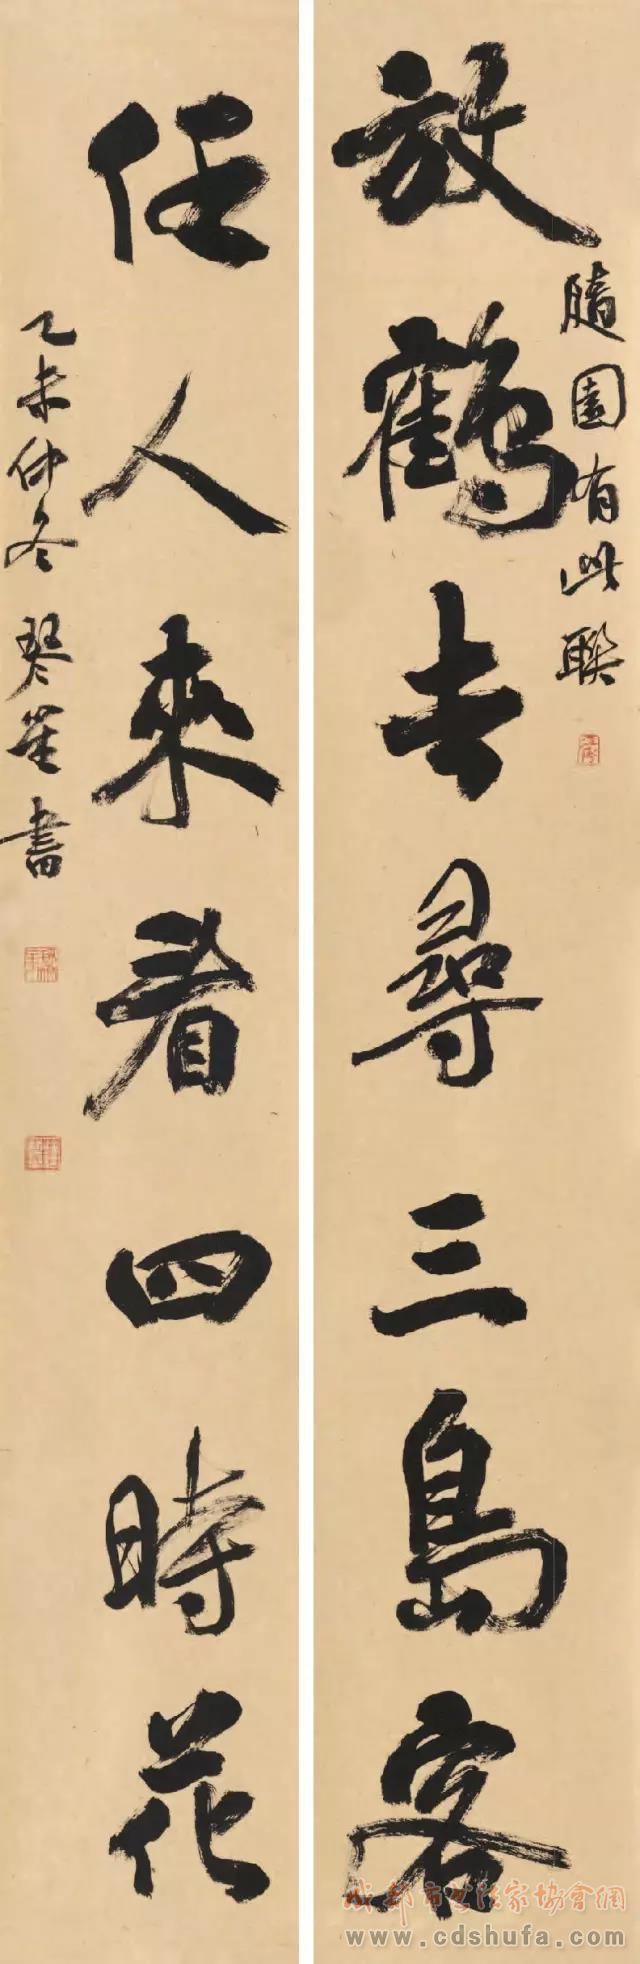 隨園有此聯
放鶴去尋三島客
任人來看四時花
乙未仲冬琴笙書
成都市书法家協會網
www.cdshufa.com